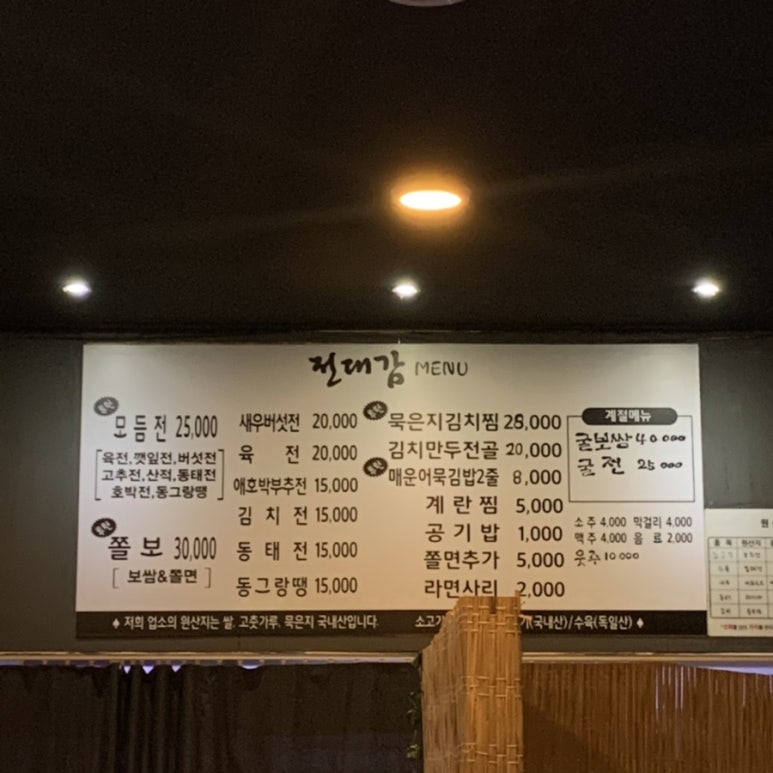 전대감 MENU
모듬전 25,000
육전,깻잎전,버섯전
고추전,산적,동태전
호박전,동그랑땡
쫄보 30,000
보쌈&쫄면
새우버섯전 20,000
육 전 20,000
애호박부추전 15,000
김 치 전 15,000
동 태 전 15,000
동그랑땡 15,000
묵은지김치찜 25,000
김치만두전골 20,000
매운어묵김밥2줄 8,000
계 란 찜 5,000
공 기 밥 1,000
쫄면추가 5,000
라면사리 2,000
계절메뉴
굴보쌈 40000
굴전 25000
소주 4,000 막걸리 4,000
맥주 4,000 음료 2,000
웃국 10.000
♠ 저희 업소의 원산지는 쌀, 고춧가루, 묵은지 국내산입니다.
소고기 (국내산)/수육(독일산) ♠
품목 원산지